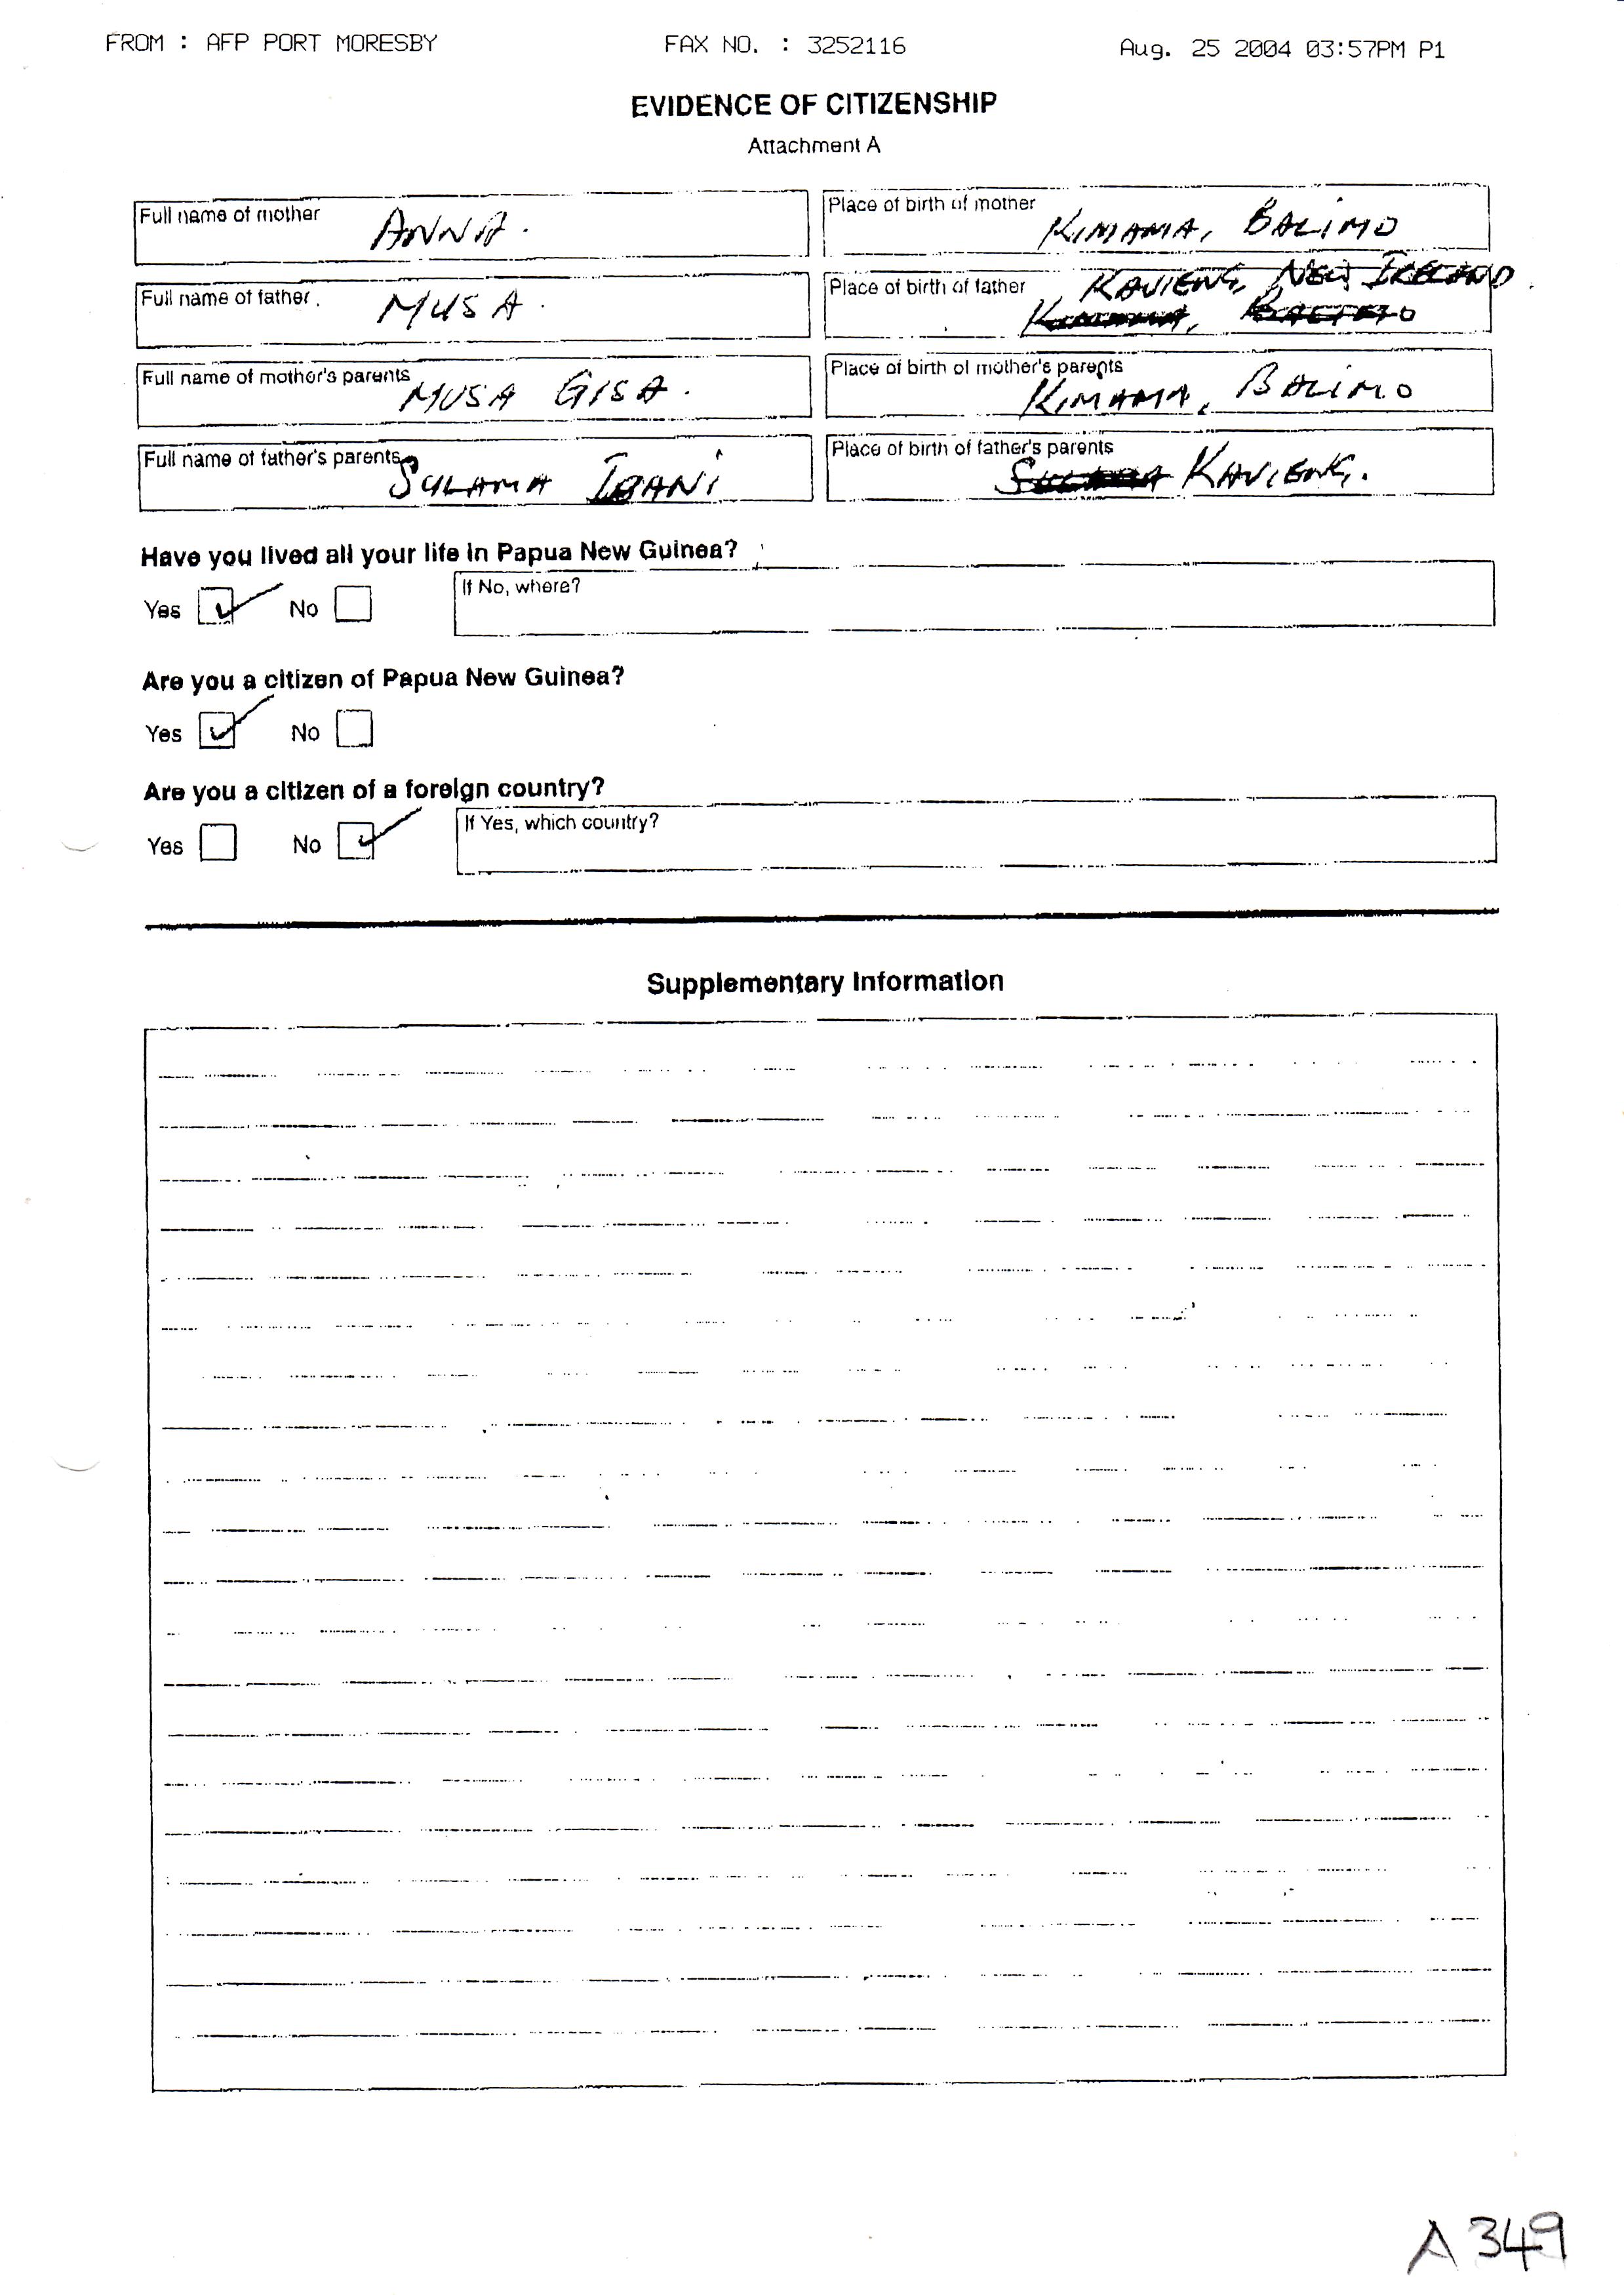 FROM : AFP PORT MORESBY FAX NO. : 3252116 Aug. 25 2004 03:57PM P1
EVIDENCE OF CITIZENSHIP
Attachment A
Full name of mother ANNA. Place of birth of mother KIMAMA, BALIMO
Full name of father MUSA. Place of birth of father KAVIENG, NEW IRELAND
Full name of mother's parents MUSA GISA. Place of birth of mother's parents KIMAMA, BALIMO
Full name of father's parents SULAMA IBANI Place of birth of father's parents KAVIENG.
Have you lived all your life in Papua New Guinea?
Yes No If No, where?
Are you a citizen of Papua New Guinea?
Yes No
Are you a citizen of a foreign country?
Yes No If Yes, which country?
Supplementary Information
A 349